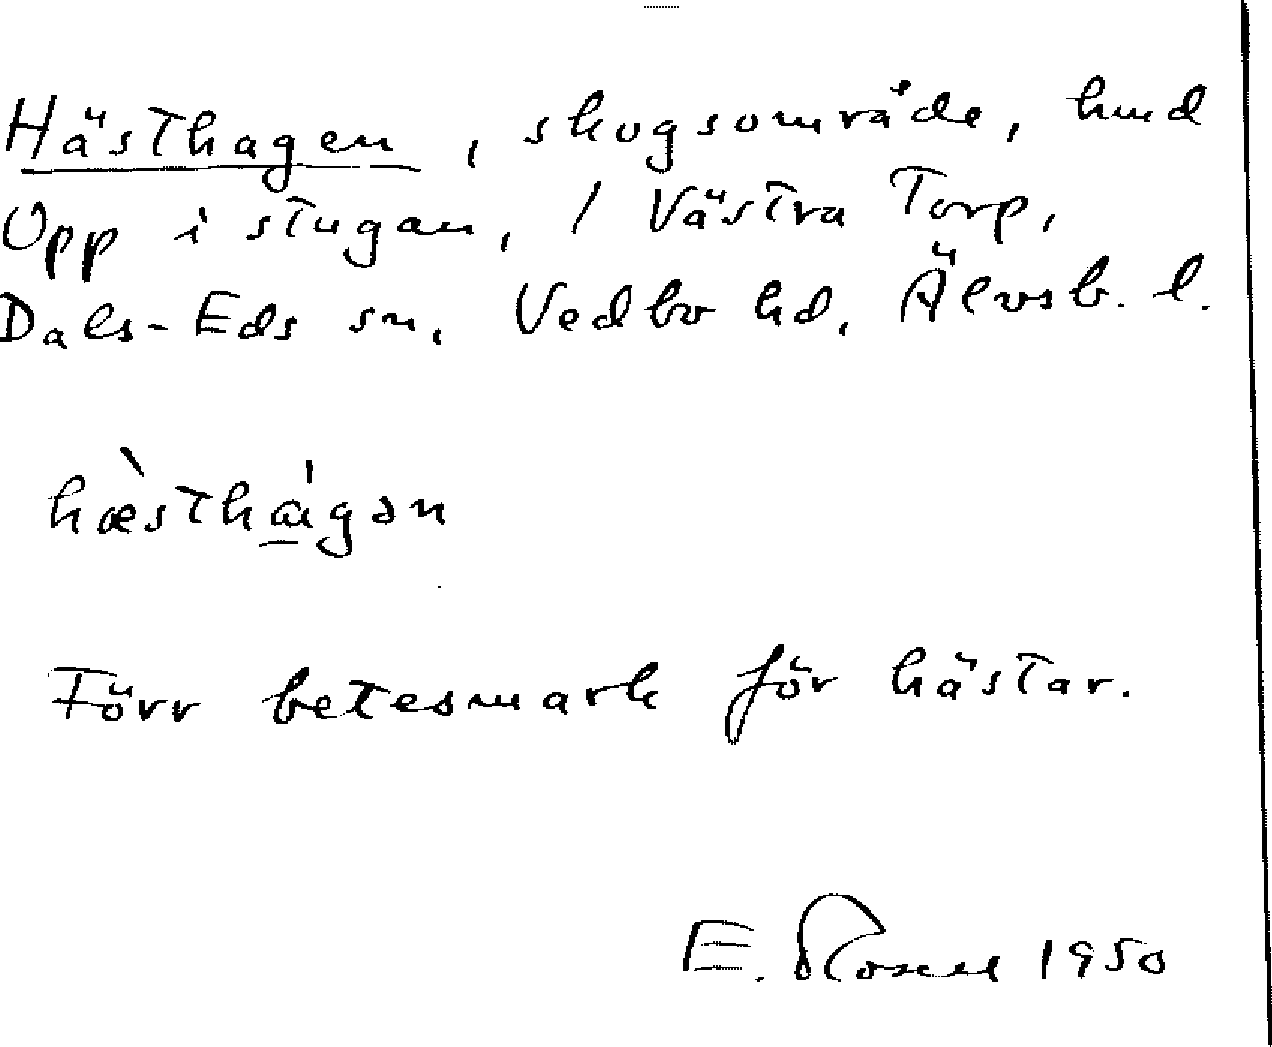 Hästhagen, skogsområde, hmd
Opp i stugan, / Västra Torp,
Dals-Eds sn, Vedbo hd, Älvsb. l.
hæ̀sthɑ̲́gən
Förr betesmark för hästar.
E. 1950